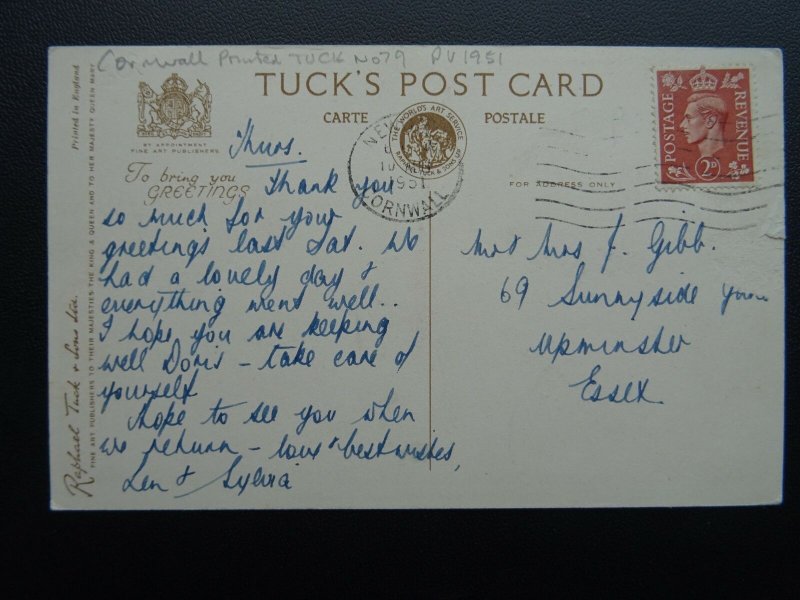 Cornwall Printed TUCK No79 PU 1951
TUCK'S POST CARD
CARTE POSTALE
BY APPOINTMENT
FINE ART PUBLISHERS
THE WORLD'S ART SERVICE
RAPHAEL TUCK & SONS LTD
To bring you
GREETINGS
FOR ADDRESS ONLY
POSTAGE REVENUE
2D
1951
CORNWALL
Printed in England
Raphael Tuck & Sons Ltd.
FINE ART PUBLISHERS TO THEIR MAJESTIES THE KING & QUEEN AND TO HER MAJESTY QUEEN MARY
Thurs.
Thank you
so much for your
greetings last Sat. We
had a lovely day &
everything went well..
I hope you are keeping
well Doris – take care of
yourself
Hope to see you when
we return – love & best wishes,
Len & Sylvia
Mr & Mrs J. Gibb.
69 Sunnyside
Upminster
Essex.